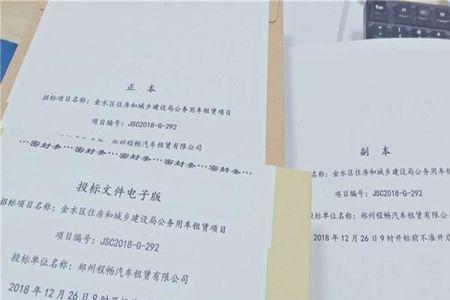 正 本
招标项目名称：金水区住房和城乡建设局公务用车租赁项目
项目编号：JSC2018-G-292
郑州程畅汽车租赁有限公司
···密封条······密封条······密封条······密封条···
投标文件电子版
招标项目名称：金水区住房和城乡建设局公务用车租赁项目
项目编号：JSC2018-G-292
投标单位名称：郑州程畅汽车租赁有限公司
2018年12月26日9时
副 本
金水区住房和城乡建设局公务用车租
项目编号：JSC2018-G-292
称：郑州程畅汽车租赁有限公
2018年12月26日9时开标前不准开启